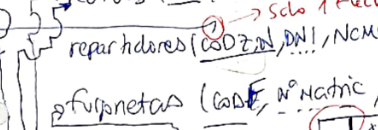 → Solo 1
repartidores (CODZ,N, DNI, NOM
furgonetas (CODE, Nº Matric,